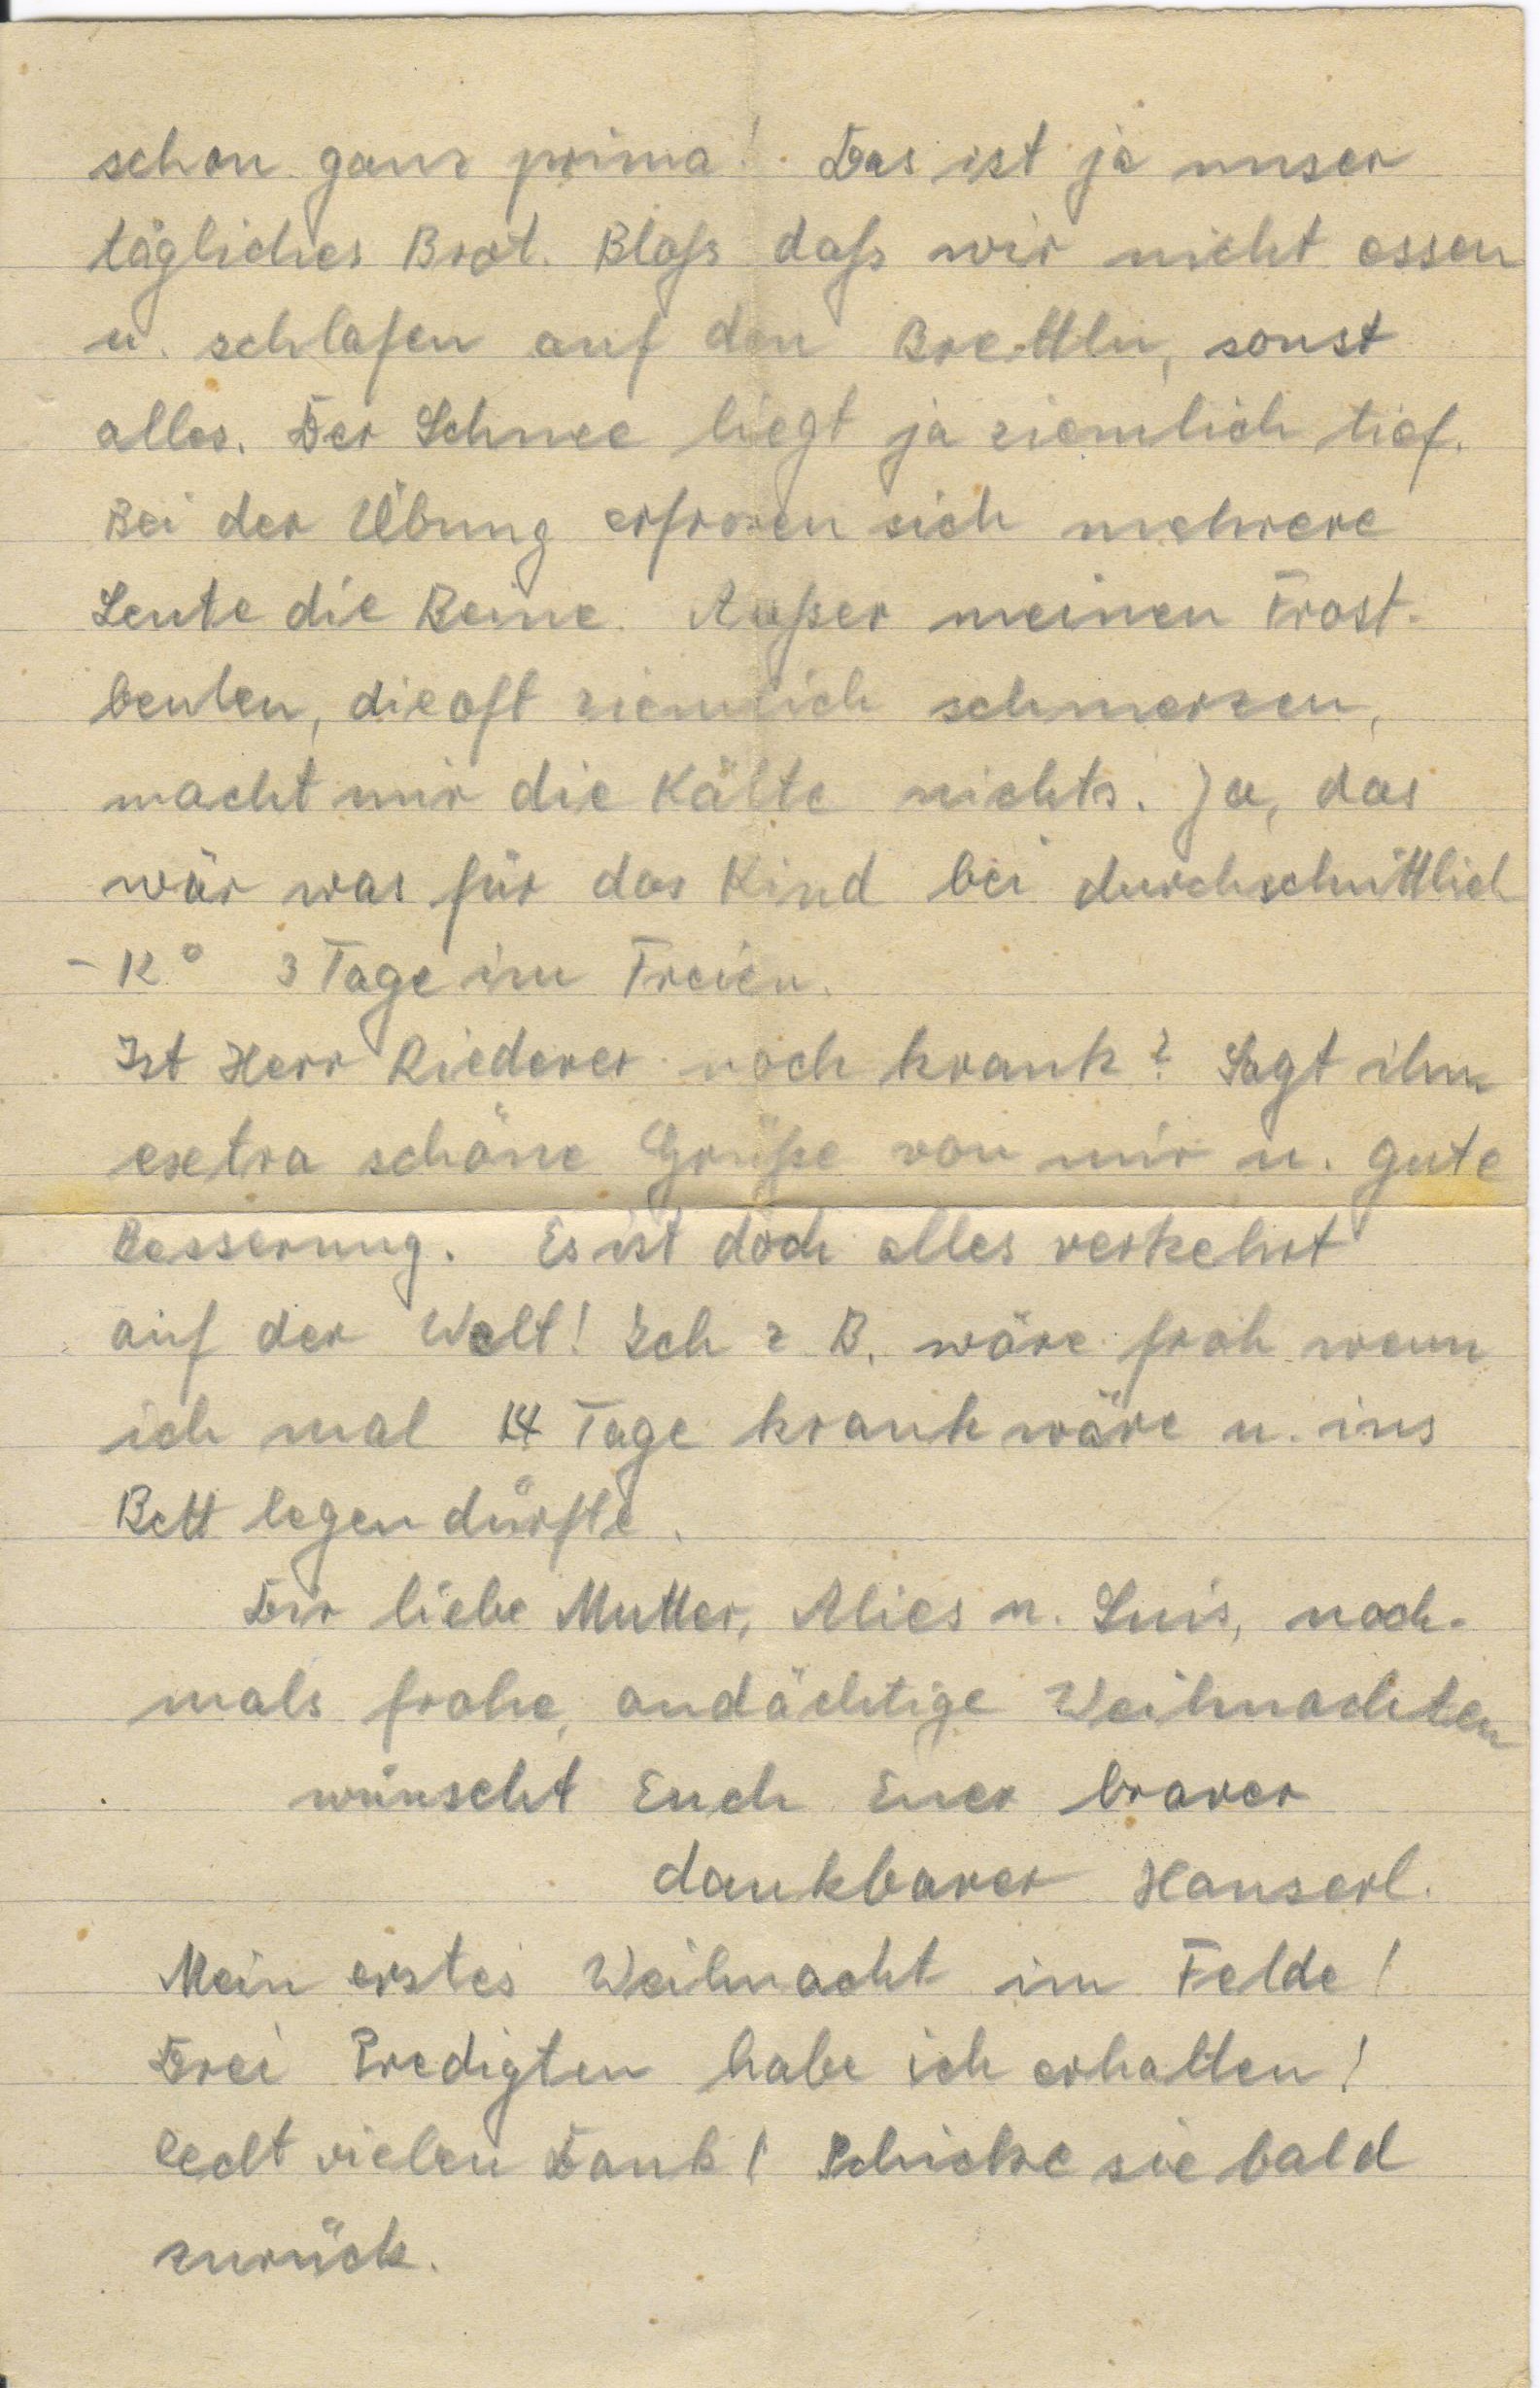 schon ganz prima! Das ist ja unser
tägliches Brot. Bloß daß wir nicht essen
u. schlafen auf den Brettln, sonst
alles. Der Schnee liegt ja ziemlich tief.
Bei der Übung erfroren sich mehrere
Leute die Beine. Außer meinen Frost-
beulen, die oft ziemlich schmerzen,
macht mir die Kälte nichts. Ja, das
wär was für das Kind bei durchschnittlich
- 12° 3 Tage im Freien.
Ist Herr Riederer noch krank? Sagt ihm
exetra schöne Grüße von mir u. gute
Besserung. Es ist doch alles verkehrt
auf der Welt! Ich z B. wäre froh wenn
ich mal 14 Tage krank wäre u. ins
Bett legen dürfte.
Dir liebe Mutter, Alies u. Luis, noch-
mals frohe, andächtige Weihnachten
wünscht Euch Euer braver
dankbarer Hanserl.
Mein erstes Weihnacht im Felde!
Drei Predigten habe ich erhalten!
Recht vielen Dank! Schicke sie bald
zurück.